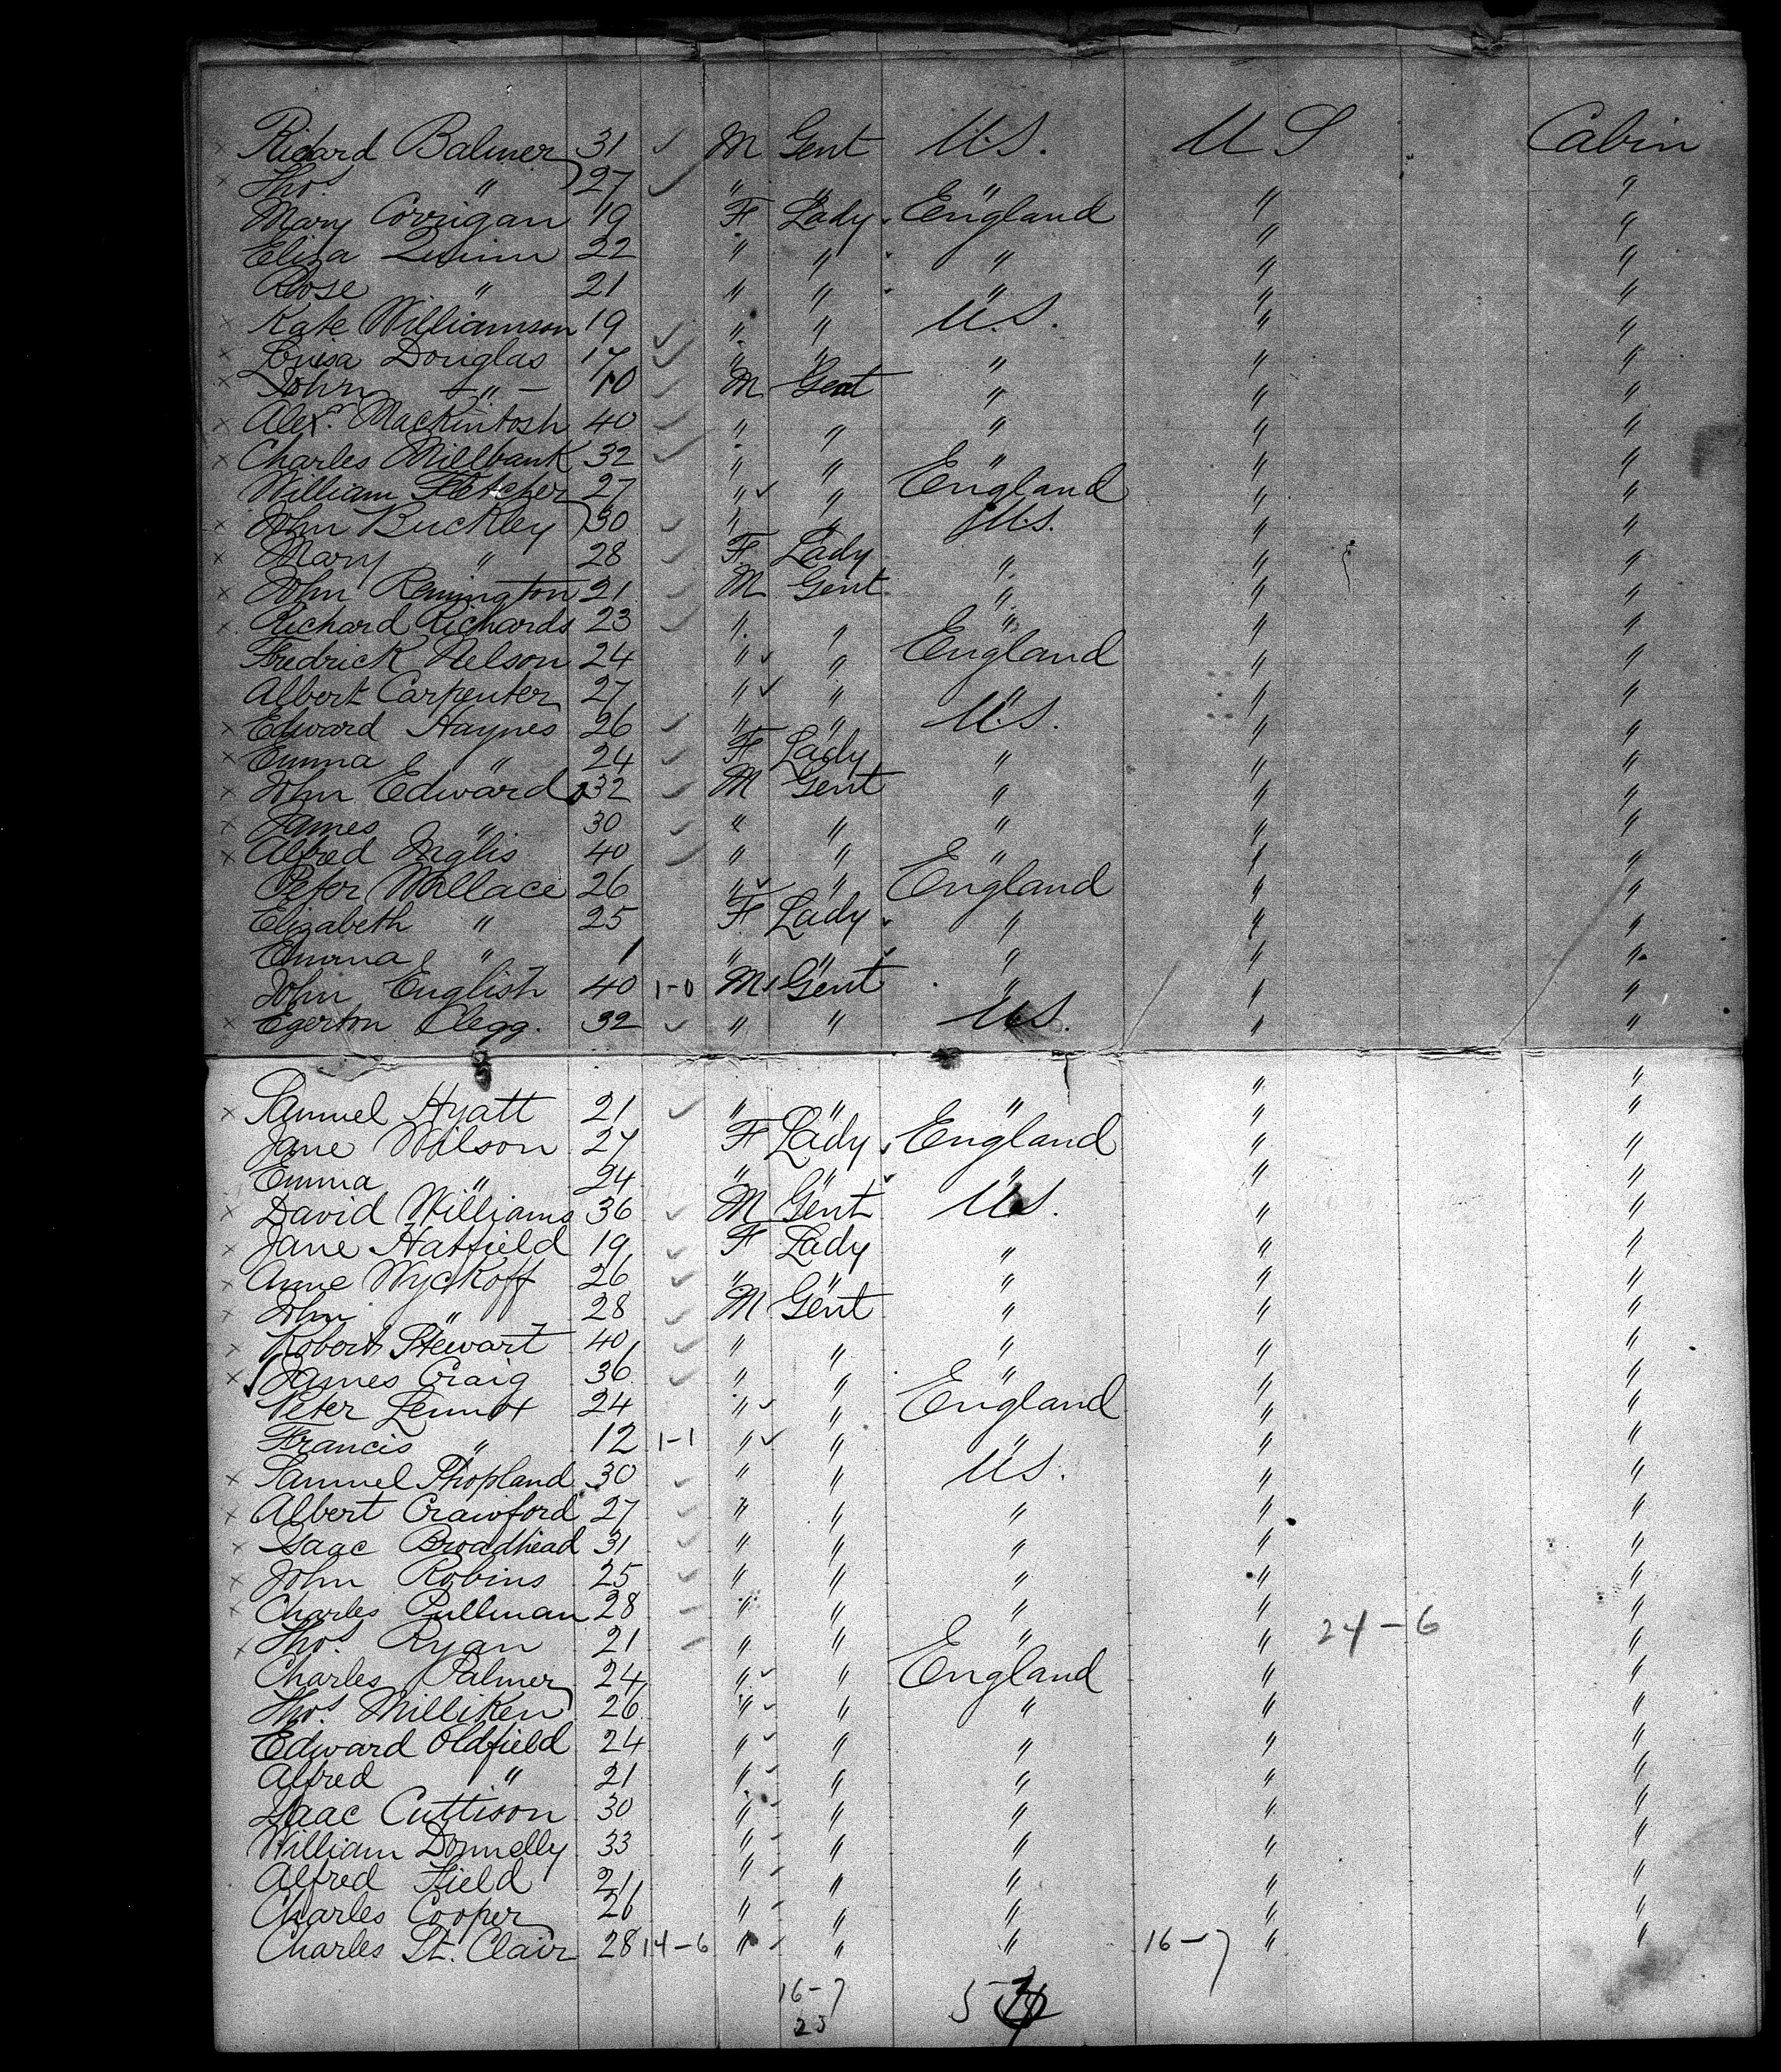 Richard Balmer 31 M Gent U.S. U S Cabin
Thos " 27 " " " " "
Mary Corrigan 19 F Lady England " "
Eliza Quinn 22 " " " " "
Rose " 21 " " " " "
Kate Williamson 19 " " U.S. " "
Louisa Douglas 17 " " " " "
John " 10 M Gent " " "
Alexr. Mackintosh 40 " " " " "
Charles Millbank 32 " " " " "
William Fletcher 27 " " England " "
John Buckley 30 " " U.S. " "
Mary " 28 F Lady " " "
John Remington 21 M Gent " " "
Richard Richards 23 " " " " "
Fredrick Nelson 24 " " England " "
Albert Carpenter 27 " " " " "
Edward Haynes 26 " " U.S. " "
Emma " 24 F Lady " " "
John Edward 32 M Gent " " "
James " 30 " " " " "
Alfred Inglis 40 " " " " "
Peter Wallace 26 " " England " "
Elizabeth " 25 F Lady " " "
Emma " 1 " " " " "
John English 40 1-0 M Gent " " "
Egerton Clegg. 32 " " U.S. " "
Samuel Hyatt 21 " " " " "
Jane Wilson 27 F Lady England " "
Emma " 24 " " " " "
David Williams 36 M Gent U.S. " "
Jane Hatfield 19 F Lady " " "
Anne Wyckoff 26 " " " " "
John " 28 M Gent " " "
Robert Stewart 40 " " " " "
James Craig 36 " " " " "
Peter Lennox 24 " " England " "
Francis " 12 1-1 " " " " "
Samuel Shopland 30 " " U.S. " "
Albert Crawford 27 " " " " "
Isaac Broadhead 31 " " " " "
John Robins 25 " " " " "
Charles Pullman 28 " " " " "
Thos Ryan 21 " " " " 24-6 "
Charles Palmer 24 " " England " "
Thos. Milliken 26 " " " " "
Edward Oldfield 24 " " " " "
Alfred " 21 " " " " "
Isaac Cuttison 30 " " " " "
William Donnelly 33 " " " " "
Alfred Field 21 " " " " "
Charles Cooper 26 " " " " "
Charles St. Clair 28 14-6 " " " 16-7 " "
16-7
25